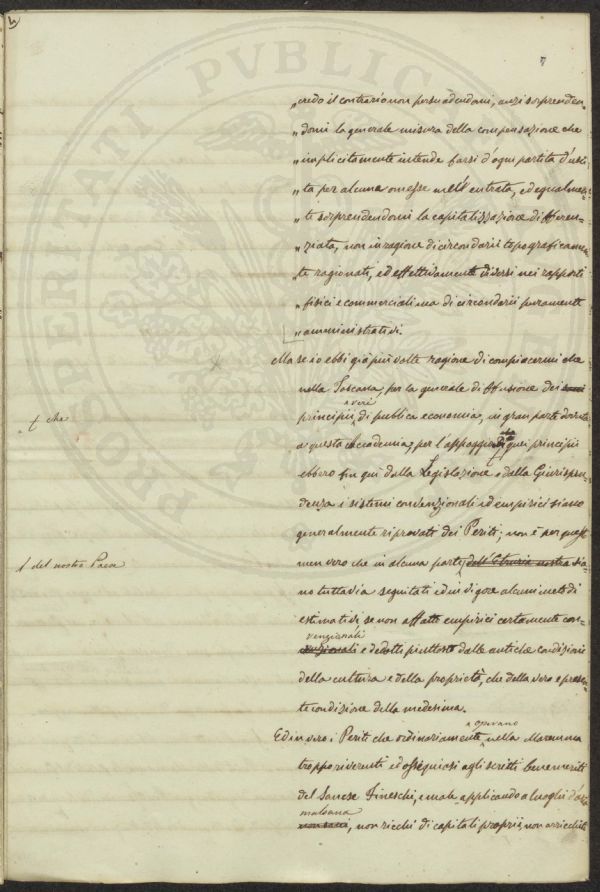 7
„credo il contrario non persuadendomi, anzi sorprenden-
„domi la generale misura della compensazione che
„implicitamente intende farsi d'ogni partita d'usci-
„ta per alcuna omesse nell'entrata, ed egualmen-
„te sorprendendomi la capitalizzazione differen-
„ziata, non in ragione di circondarii topograficamen-
„te ragionati, ed effettivamente diversi nei rapporti
„fisici e commerciali ma di circondarii puramente
„amministrativi.
Ma se io ebbi già più volte ragione di compiacermi che
nella Toscana, per la generale diffusione dei
veri
principii, di publica economia, in gran parte dovuta
che
a questa Accademia, per l'appoggio che quei principii
ebbero fin quì dalla Legislazione e dalla Giurispru-
denza i sistemi convenzionali ed empirici siano
generalmente riprovati dai Periti; non è per questo
del nostro Paese
men vero che in alcuna parte dell'Etruria nostra sia-
no tuttavia seguitati ed in vigore alcuni metodi
estimativi, se non affatto empirici certamente con-
venzionali
e dedotti piuttosto dalle antiche condizioni
della cultura e della proprietà, che dalla vera e presen-
te condizione della medesima.
operano
Ed in vero i Periti che ordinariamente nella Maremma
troppo riverenti ed ossequiosi agli scritti benemeriti
del Sanese Fineschi, e male applicando a luoghi d'aria
malsana
, non ricchi di capitali proprii, non arricchiti